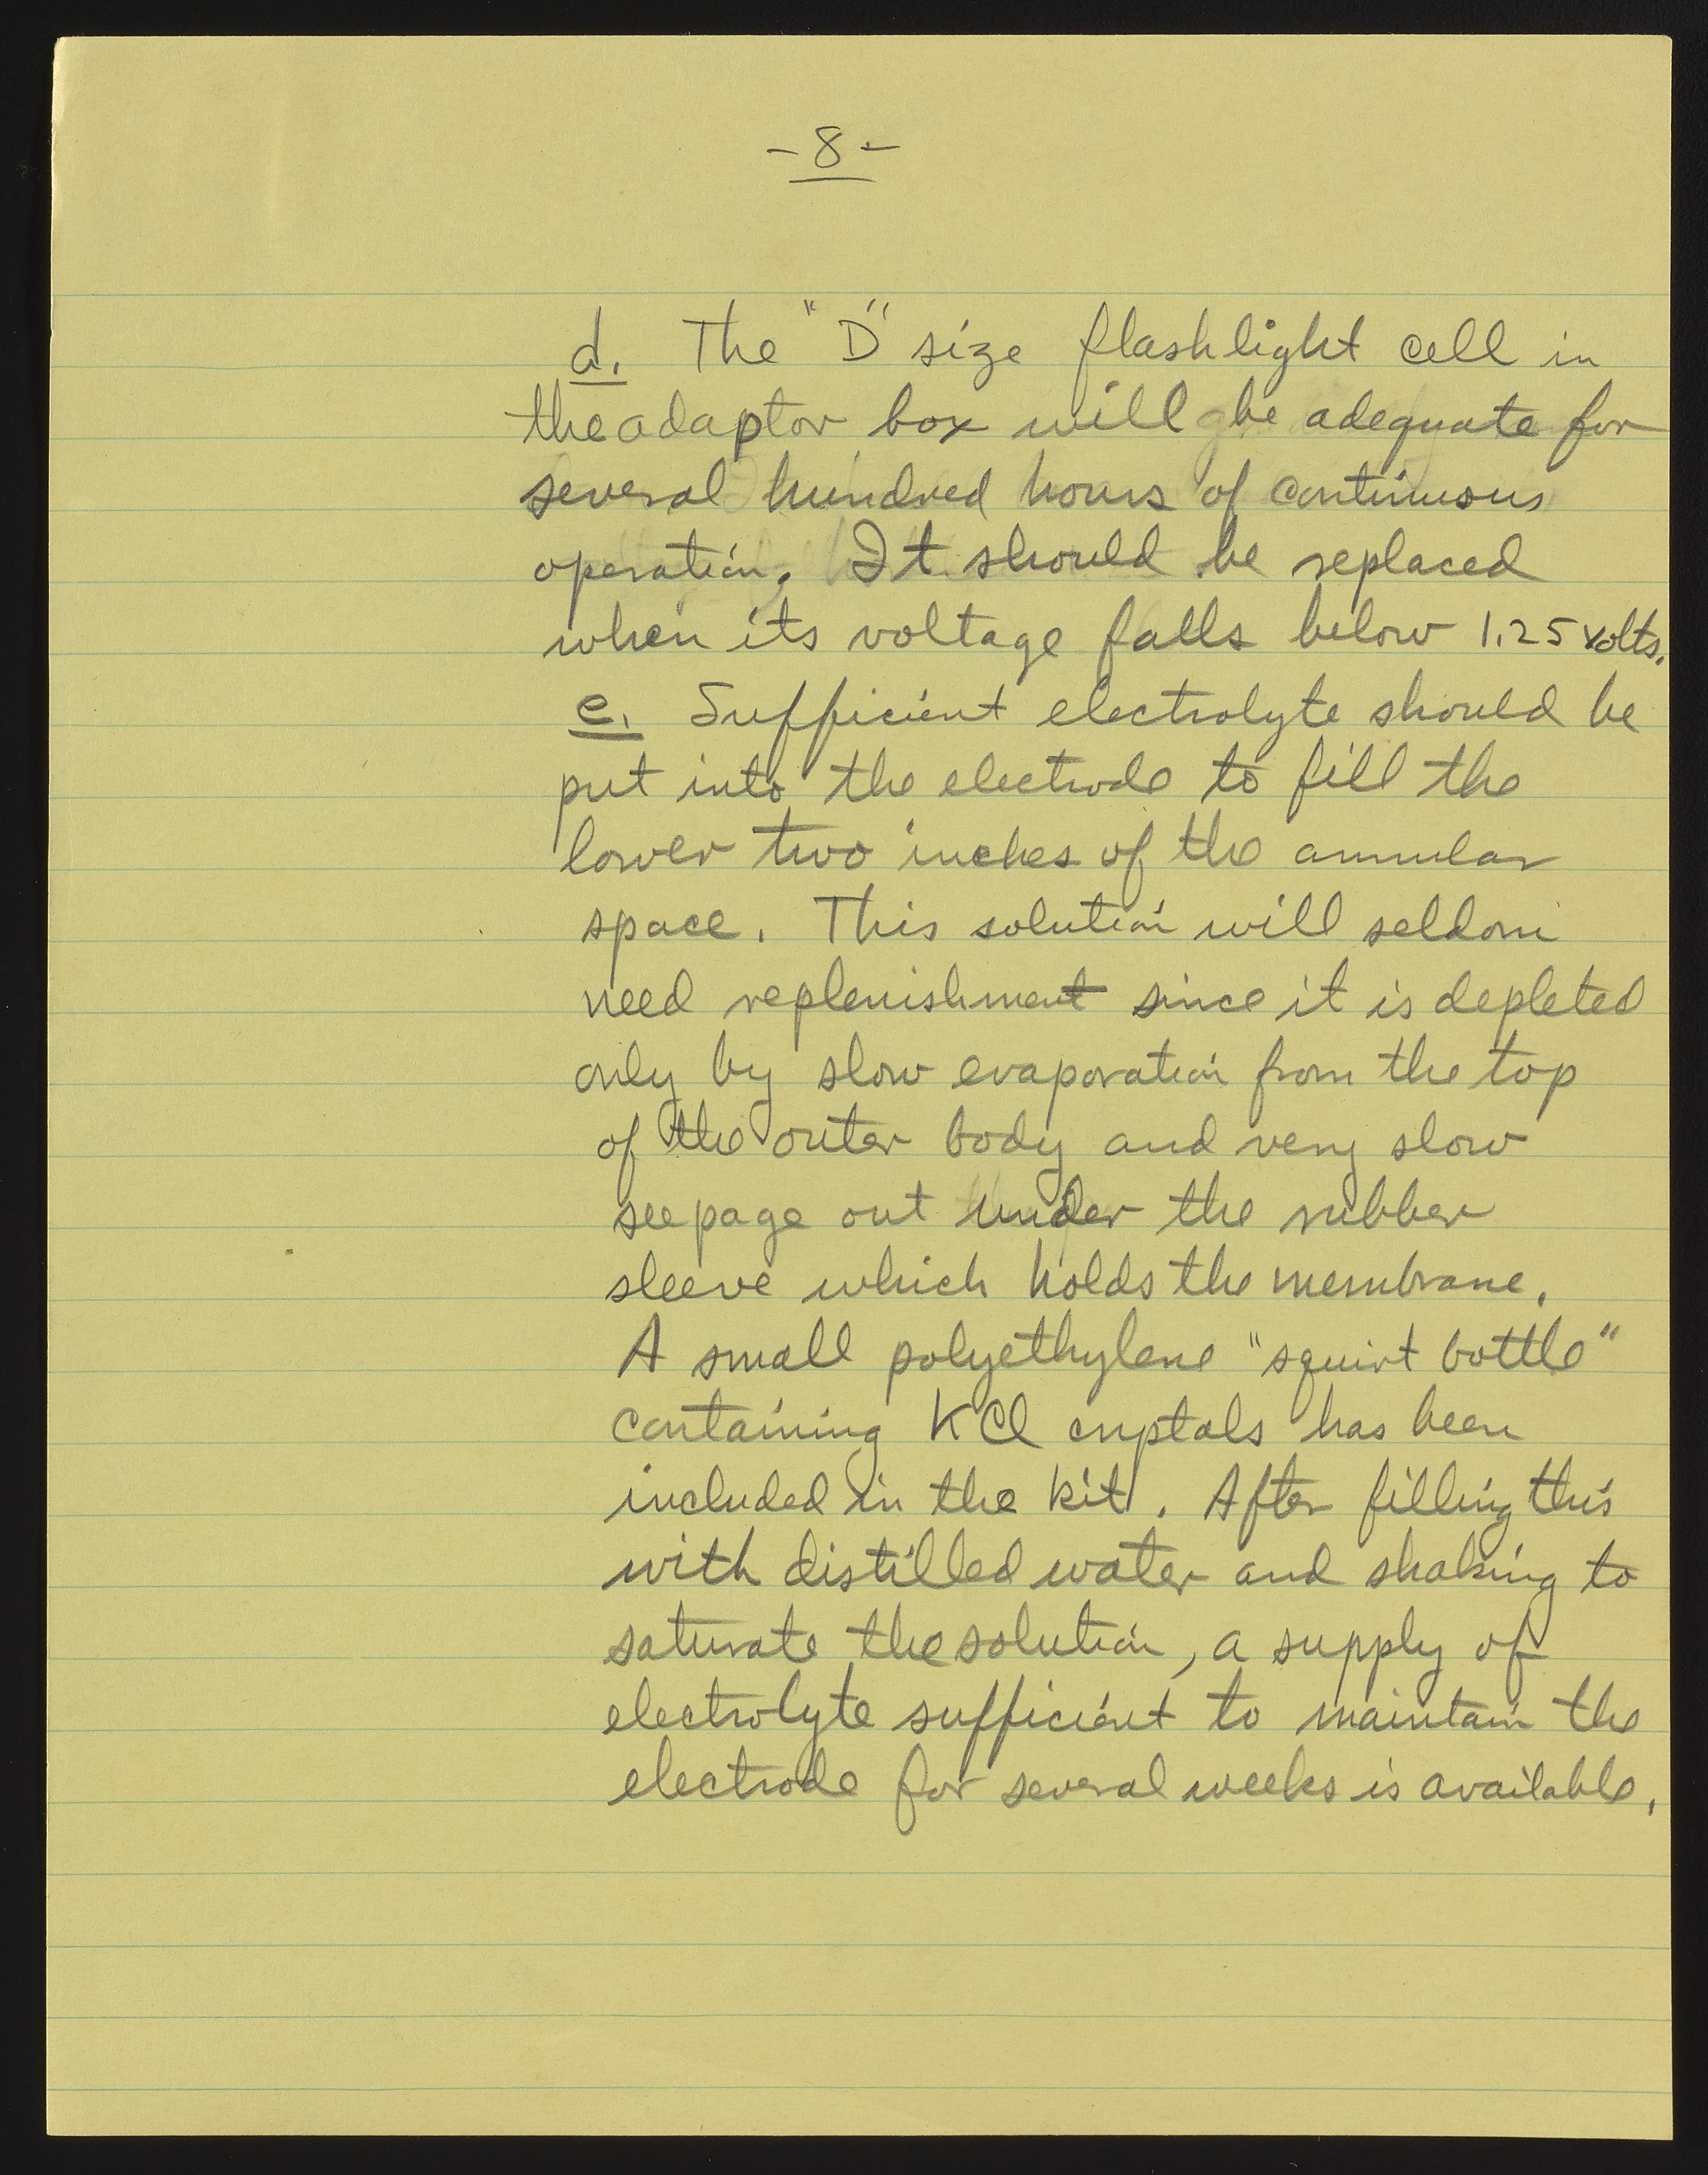 - 8 -
d. The "D" size flashlight cell in
the adaptor box will be adequate for
several hundred hours of continuous
operation. It should be replaced
when its voltage falls below 1.25 volts.
e. Sufficient electrolyte should be
put into the electrode to fill the
lower two inches of the annular
space. This solution will seldom
need replenishment since it is depleted
only by slow evaporation from the top
of the outer body and very slow
seepage out under the rubber
sleeve which holds the membrane.
A small polyethylene "squirt bottle"
containing KCl crystals has been
included in the kit. After filling this
with distilled water and shaking to
saturate the solution, a supply of
electrolyte sufficient to maintain the
electrode for several weeks is available.